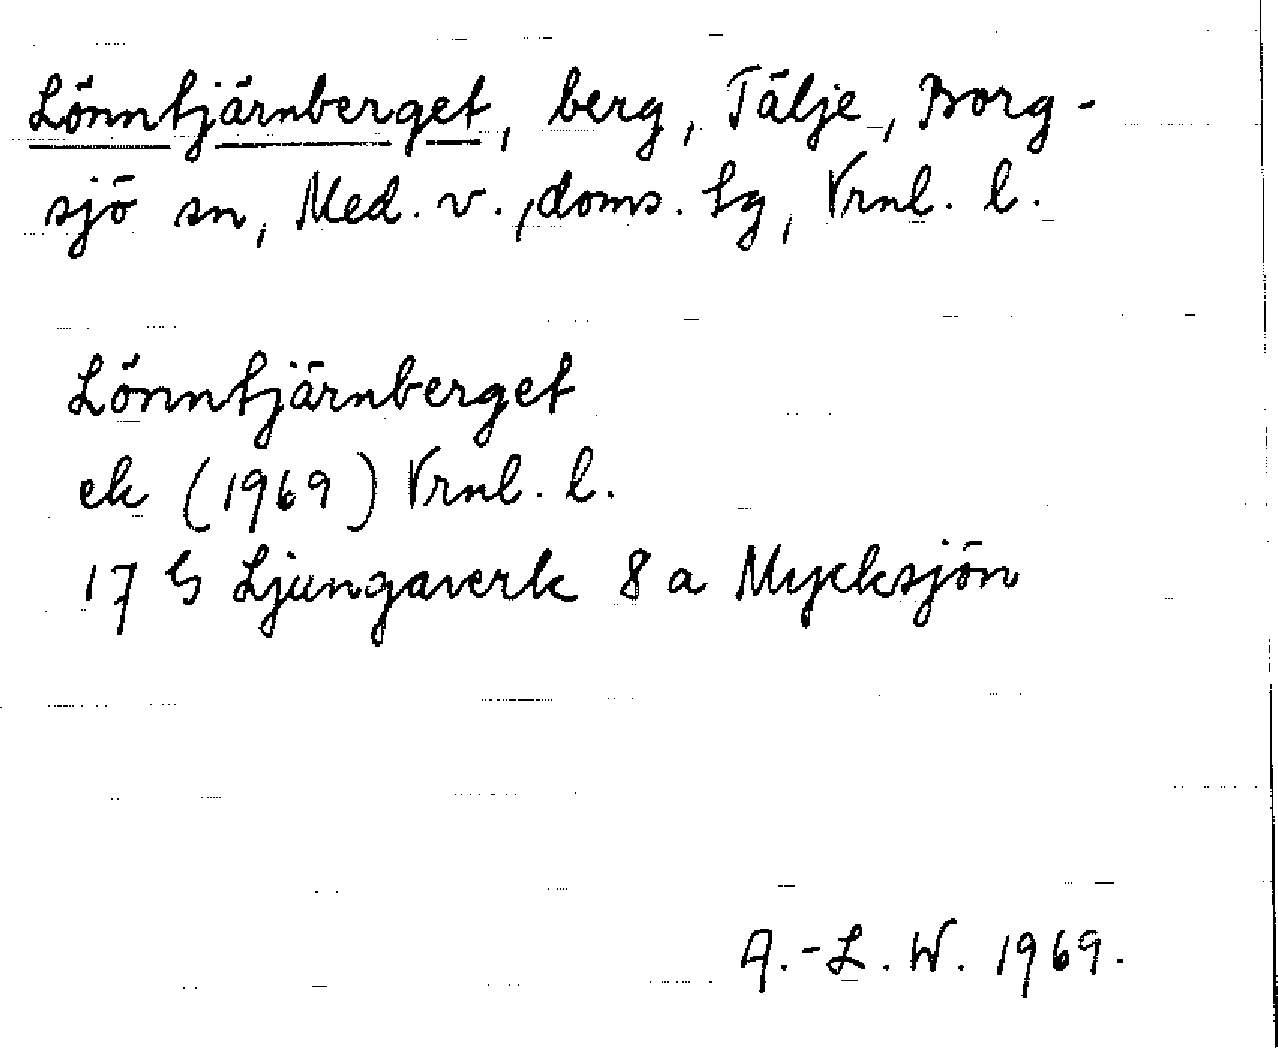 Lönntjärnberget, berg, Tälje, Borg-
sjö sn, Med. v., doms. sg, Vrnl. l.
Lönntjärnberget
ek (1969) Vrnl. l.
17 G Ljungaverk 8 a Mycksjön
A.-L. W. 1969.